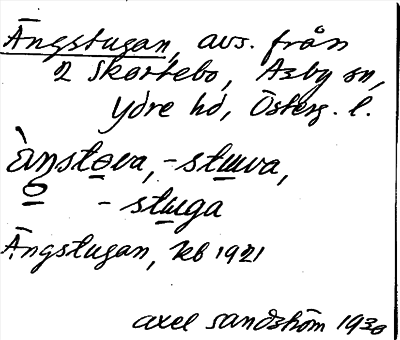 Ängstugan, avs. från
2 Skartebo, Asby sn,
Ydre hd, Österg. l.
äŋstova, -stuva,
o - stuga
Ängstugan, kb 1921
Axel Sandström 1930